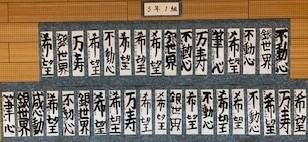 3年1組
不動心
銀世界
不動心
希望
筆心
万寿
不動心
希望
希望
不動心
希望
万寿
銀世界
希望
希望
万寿
不動心
希望
希望
不動心
希望
銀世界
希望
希望
万寿
不動心
希望
銀世界
不動心
銀世界
筆心